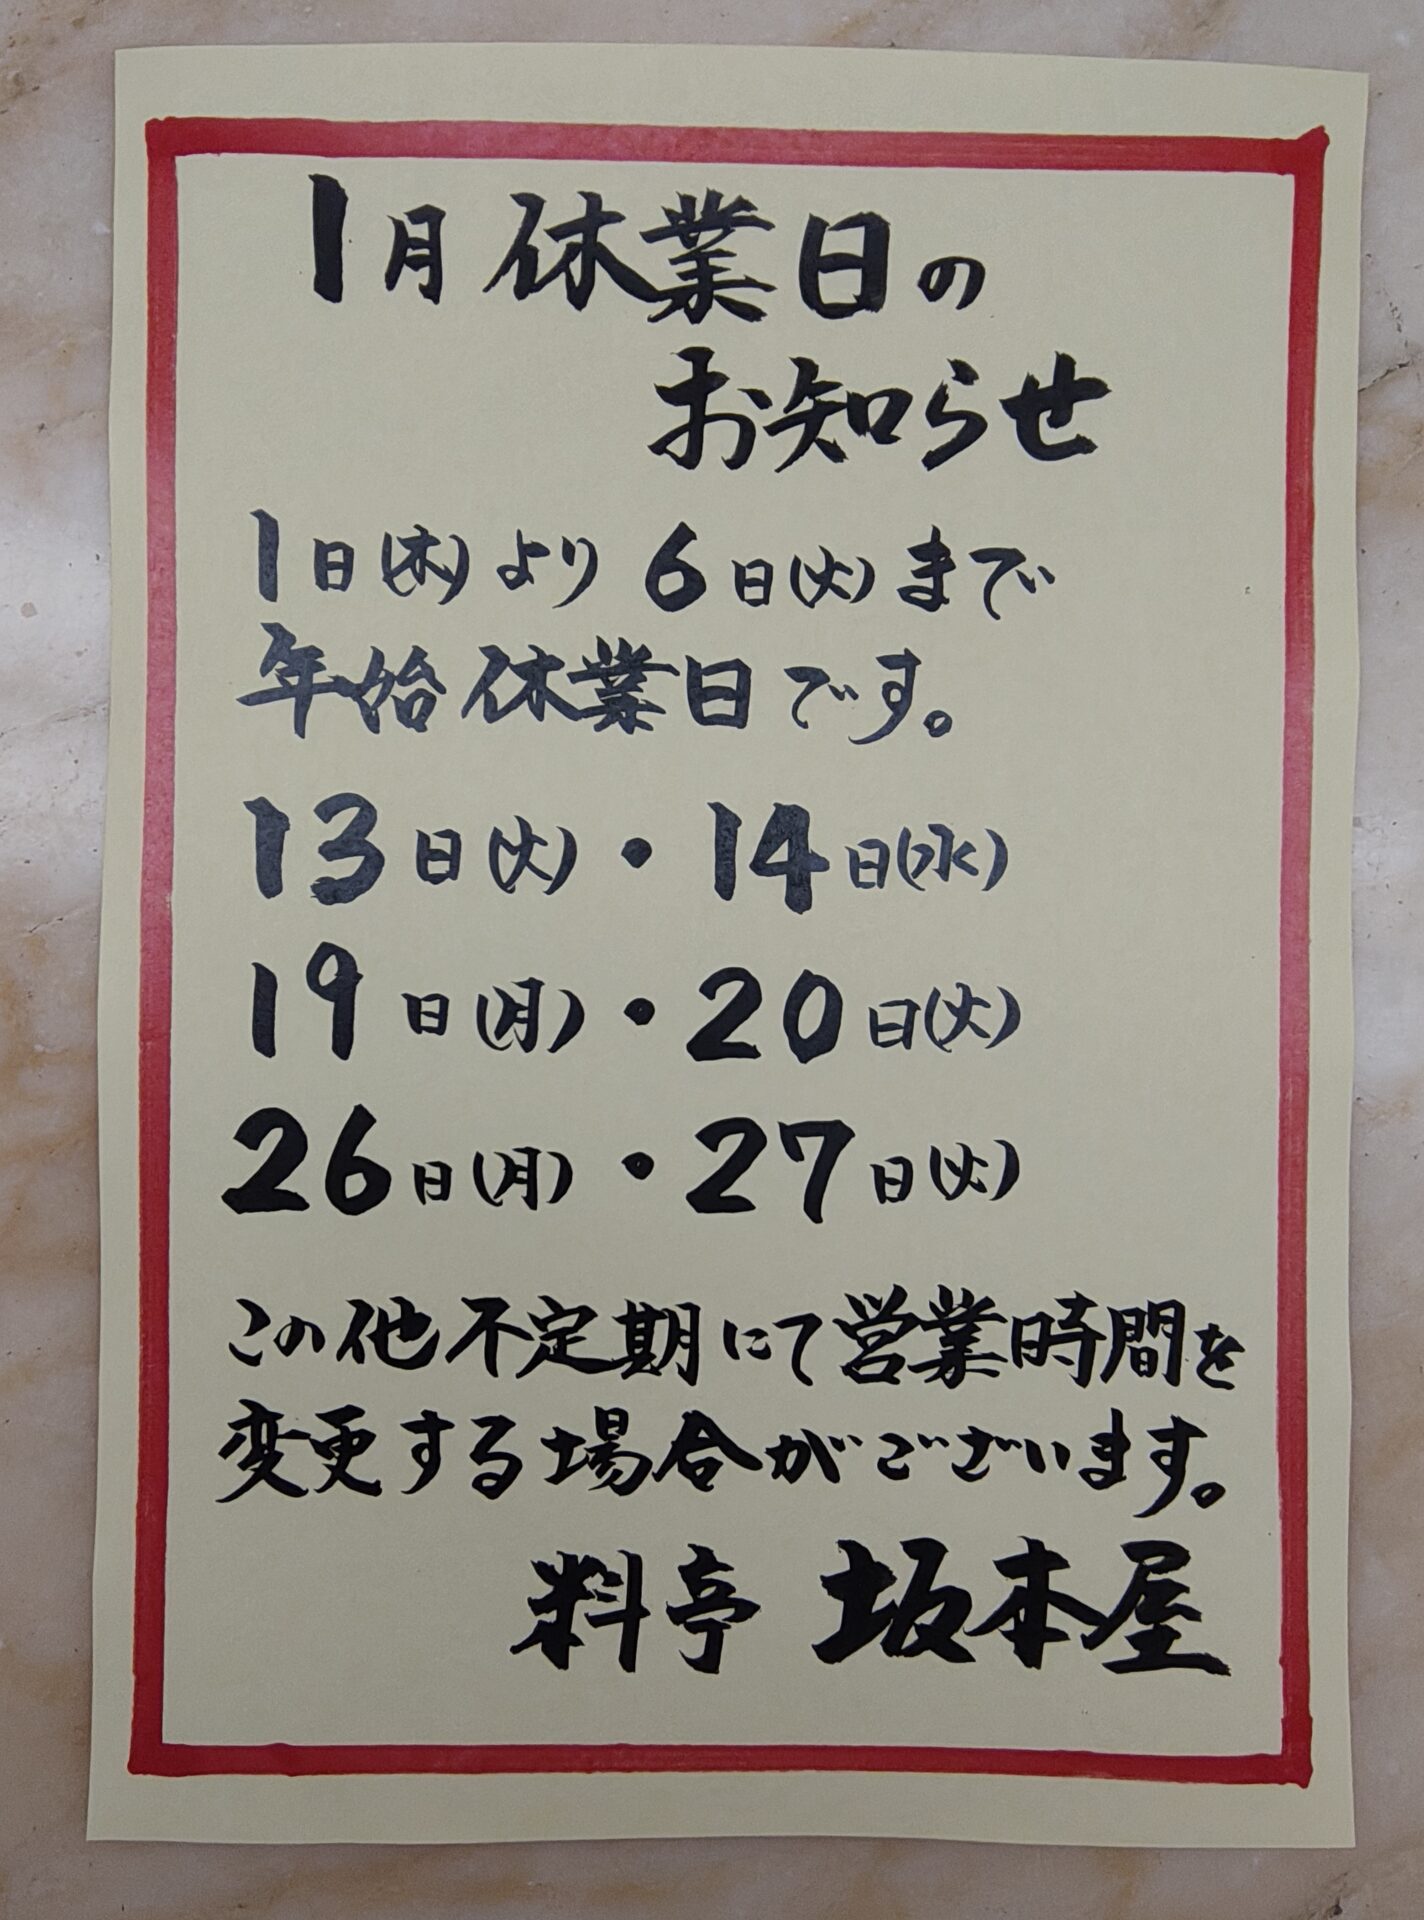 1月休業日の
お知らせ
1日(木)より6日(火)まで
年始休業日です。
13日(火)・14日(水)
19日(月)・20日(火)
26日(月)・27日(火)
この他不定期にて営業時間を
変更する場合がございます。
料亭 坂本屋